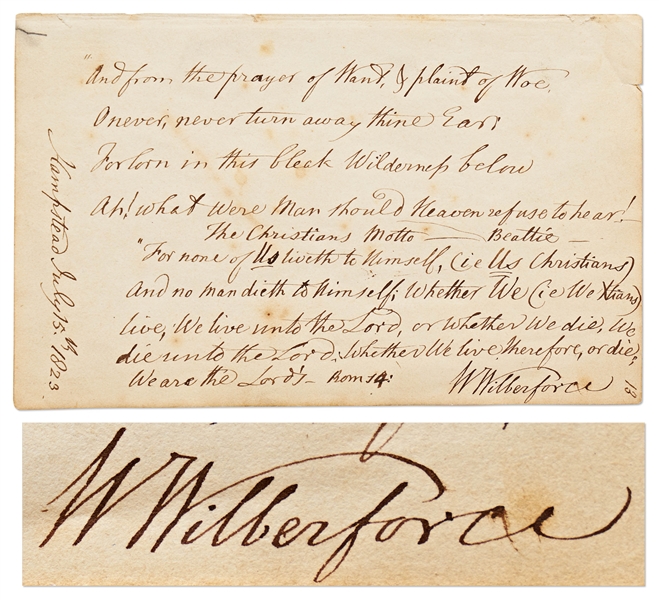 "And from the prayer of Want, & plaint of Woe,
O never, never turn away thine Ear;
Forlorn in this bleak Wilderness below
Ah! what were Man should Heaven refuse to hear!
The Christians Motto — Beattie —
"For none of Us liveth to Himself, (ie Us Christians)
And no man dieth to Himself; Whether We (ie We Xtians)
live, We live unto the Lord, or whether We die, We
die unto the Lord: Whether We live therefore, or die;
We are the Lord's — Rom 14:
W Wilberforce
13
Hampstead July 15.th 1823.
W Wilberforce